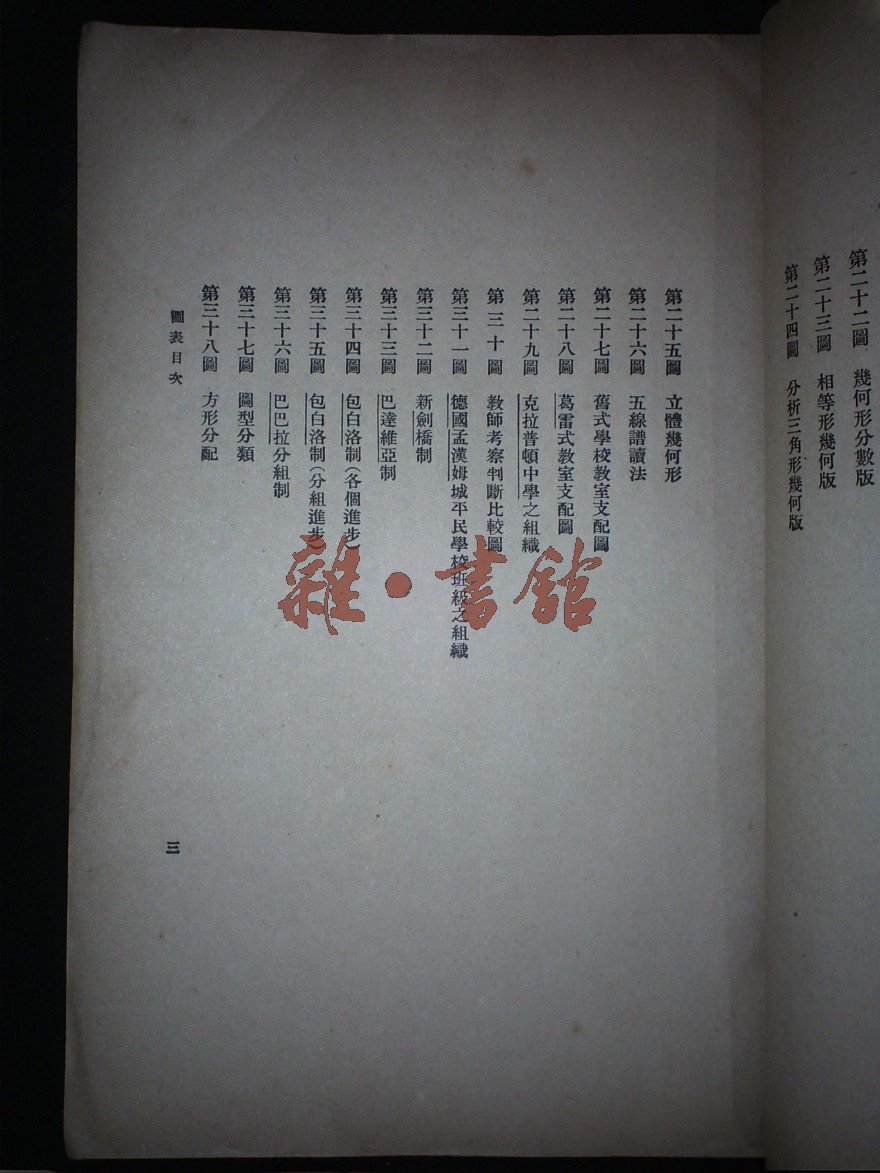 第二十二圖 幾何形分數版
第二十三圖 相等形幾何版
第二十四圖 分析三角形幾何版
第二十五圖 立體幾何形
第二十六圖 五線譜讀法
第二十七圖 舊式學校教室支配圖
第二十八圖 葛雷式教室支配圖
第二十九圖 克拉普頓中學之組織
第三十圖 教師考察判斷比較圖
第三十一圖 德國孟漢姆城平民學校班級之組織
第三十二圖 新劍橋制
第三十三圖 巴達維亞制
第三十四圖 包白洛制(各個進步)
第三十五圖 包白洛制(分組進步)
第三十六圖 巴巴拉分組制
第三十七圖 圖型分類
第三十八圖 方形分配
圖表目次
三
雜·書館